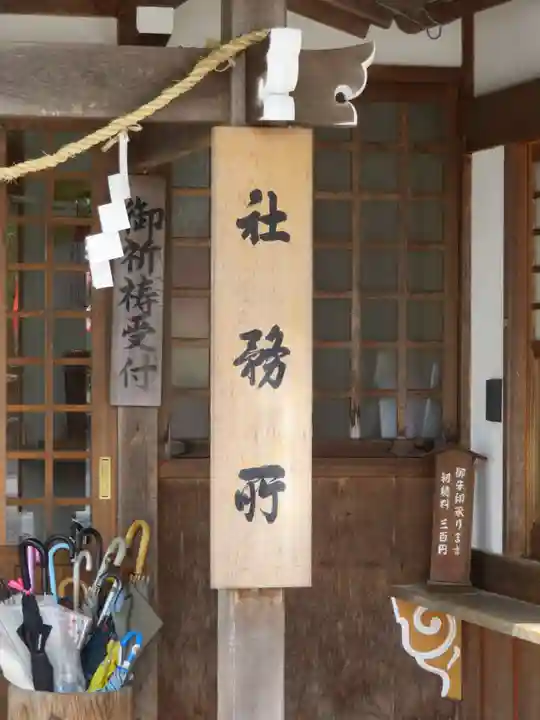 社務所
御祈祷受付
御朱印承ります
初穂料 三百円